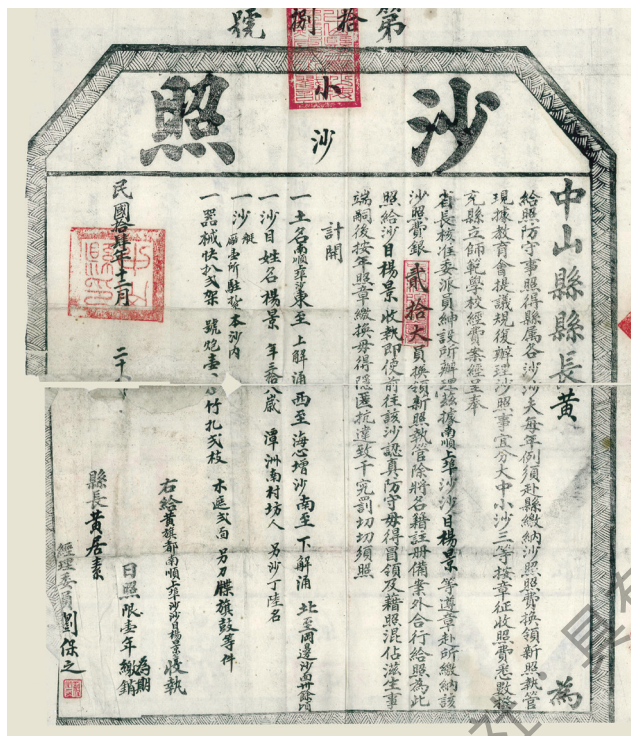 第拾捌號
沙照
小沙
中山縣縣長黃 為
給照防守事照得縣屬各沙沙夫每年例須赴縣繳納沙照照費換領新照執管
現據教育會提議規復辦理沙照事宜分大中小沙三等按章征收照費悉數撥
充縣立師範學校經費案經呈奉
省長核准委派員紳設所辦理茲據南順上埠沙沙目楊景等遵章赴所繳納該
沙照費銀貳拾大員換領新照執管除將名籍註冊備案外合行給照為此
照給沙目楊景收執即便前往該沙認真防守毋得冒領及藉照混佔滋生事
端嗣後按年照章繳換毋得隱匿抗違致干究罰切切須照
計開
一土名南順埠沙東至上解涌西至海心增沙南至下解涌北至岡邊沙南卅餘增
一沙目姓名楊景年三拾八歲潭洲南村坊人另沙丁陸名
一沙艇廠壹所駐紮本沙內
一器械快扒弍架號炮壹竹扎弍枝木返弍面另刀牒旗鼓等件
右給黃旗都南順上埠沙沙目楊景收執
民國拾肆年十二月二十
日照限壹年為期繳銷
縣長黃居素
經理委員劉保之